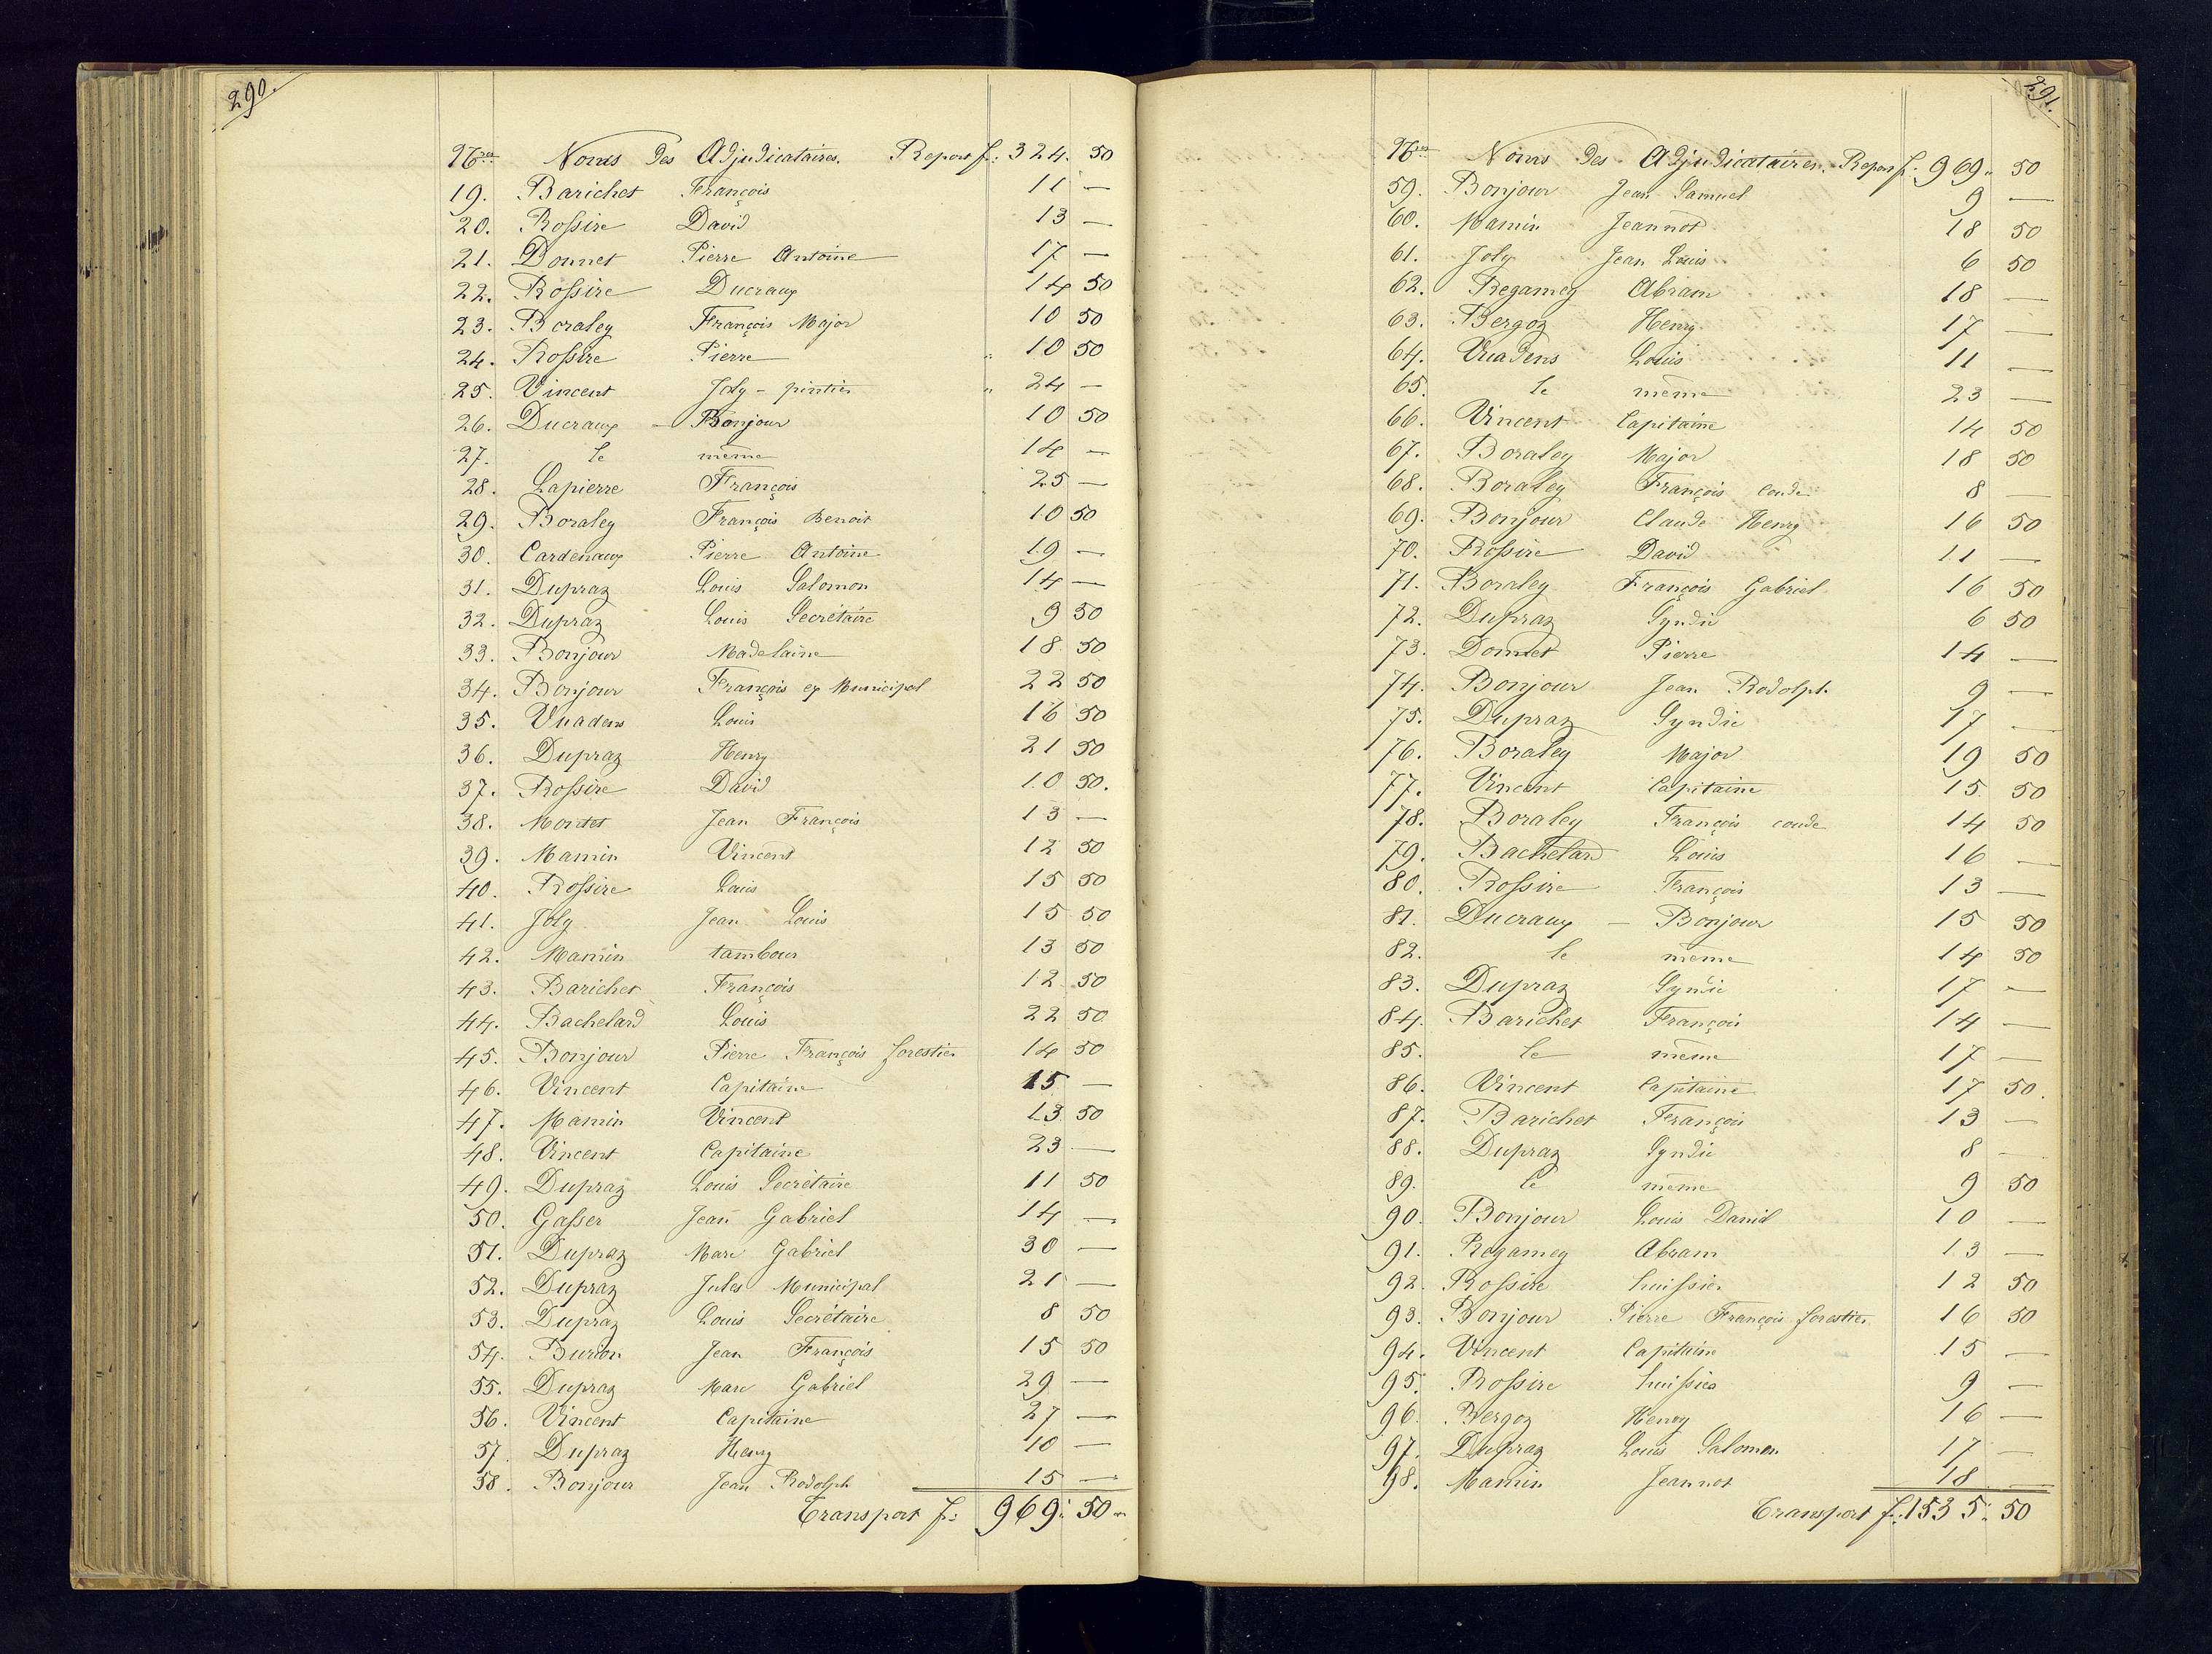 290.
Nos Noms des Adjudicataires. Report f: 324. 50
19. Barichet François 11 —
20. Rossire David 13 —
21. Donnet Pierre Antoine 17 —
22. Rossire Ducraux 14 50
23. Boraley François Major 10 50
24. Rossire Pierre " 10 50
25. Vincent Joly - pintier " 24 —
26. Ducraux - Bonjour 10 50
27. le même 14 —
28. Lapierre François 25 —
29. Boraley François Benoit 10 50
30. Cardenaux Pierre Antoine 19 —
31. Dupraz Louis Salomon 14 —
32. Dupraz Louis Secrétaire 9 50
33. Bonjour Madelaine 18 50
34. Bonjour François ex Municipal 22 50
35. Vuadens Louis 16 50
36. Dupraz Henry 21 50
37. Rossire David 10 50.
38. Montet Jean François 13 —
39. Mamin Vincent 12 50
40. Rossire Louis 15 50
41. Joly Jean Louis 15 50
42. Mamin tambour 13 50
43. Barichet François 12 50
44. Bachelard Louis 22 50
45. Bonjour Pierre François forestier 14 50
46. Vincent Capitaine 15 —
47. Mamin Vincent 13 50
48. Vincent Capitaine 23 —
49. Dupraz Louis Secrétaire 11 50
50. Gasser Jean Gabriel 14 —
51. Dupraz Marc Gabriel 30 —
52. Dupraz Jules Municipal 21 —
53. Dupraz Louis Secrétaire 8 50
54. Burion Jean François 15 50
55. Dupraz Marc Gabriel 29 —
56. Vincent Capitaine 27 —
57. Dupraz Henry 10 —
58. Bonjour Jean Rodolph 15 —
Transport f: 969: 50
291.
Nos Noms des Adjudicataires. Report f: 969. 50
59. Bonjour Jean Samuel 9 —
60. Mamin Jeannot 18 50
61. Joly Jean Louis 6 50
62. Regamey Abram 18 —
63. Bergoz Henry 17 —
64. Vuadens Louis 11 —
65. le même 23 —
66. Vincent Capitaine 14 50
67. Boraley Major 18 50
68. Boraley François coude 8 —
69. Bonjour Claude Henry 16 50
70. Rossire David 11 —
71. Boraley François Gabriel 16 50
72. Dupraz Syndic 6 50
73. Donnet Pierre 14 —
74. Bonjour Jean Rodolph. 9 —
75. Dupraz Syndic 17 —
76. Boraley Major 19 50
77. Vincent Capitaine 15 50
78. Boraley François coude 14 50
79. Bachelard Louis 16 —
80. Rossire François 13 —
81. Ducraux - Bonjour 15 50
82. le même 14 50
83. Dupraz Syndic 17 —
84. Barichet François 14 —
85. le même 17 —
86. Vincent Capitaine 17 50.
87. Barichet François 13 —
88. Dupraz Syndic 8 —
89. le même 9 50
90. Bonjour Louis Daniel 10 —
91. Regamey Abram 13 —
92. Rossire huissier 12 50
93. Bonjour Pierre François forestier 16 50
94. Vincent Capitaine 15 —
95. Rossire huissier 9 —
96. Bergoz Henry 16 —
97. Dupraz Louis Salomon 17 —
98. Mamin Jeannot 18 —
Transport f: 1535: 50